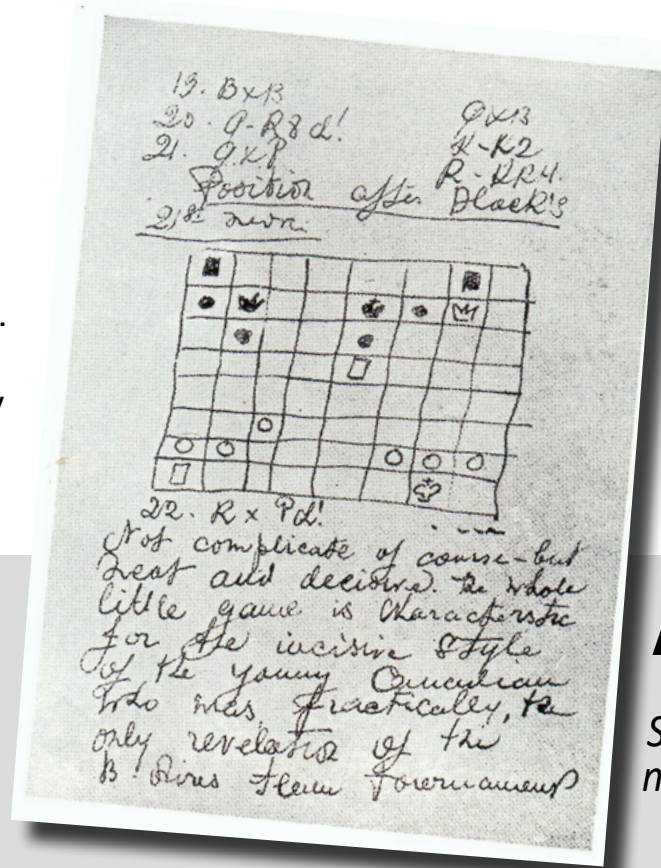 19. BxB QxB
20. Q-R8 d! K-K2
21. QxP R-KR4.
Position after Black's
21st move.
22. R x P d!
Not complicate of course - but
neat and decisive. The whole
little game is characteristic
for the incisive style
of the young Canadian
who was, practically, the
only revelation of the
B. Aires Team Tournament